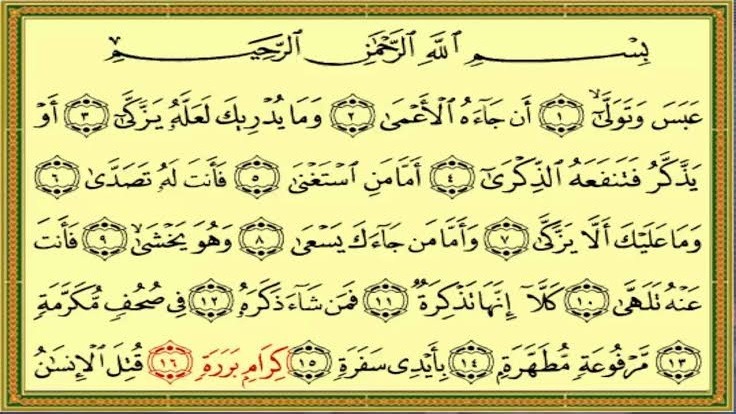 بِسْمِ اللَّهِ الرَّحْمَٰنِ الرَّحِيمِ
عَبَسَ وَتَوَلَّىٰٓ ١ أَن جَآءَهُ ٱلْأَعْمَىٰ ٢ وَمَا يُدْرِيكَ لَعَلَّهُۥ يَزَّكَّىٰٓ ٣ أَوْ
يَذَّكَّرُ فَتَنفَعَهُ ٱلذِّكْرَىٰٓ ٤ أَمَّا مَنِ ٱسْتَغْنَىٰ ٥ فَأَنتَ لَهُۥ تَصَدَّىٰ ٦
وَمَا عَلَيْكَ أَلَّا يَزَّكَّىٰ ٧ وَأَمَّا مَن جَآءَكَ يَسْعَىٰ ٨ وَهُوَ يَخْشَىٰ ٩ فَأَنتَ
عَنْهُ تَلَهَّىٰ ١٠ كَلَّآ إِنَّهَا تَذْكِرَةٌ ١١ فَمَن شَآءَ ذَكَرَهُۥ ١٢ فِي صُحُفٍ مُّكَرَّمَةٍ
١٣ مَّرْفُوعَةٍ مُّطَهَّرَةٍۭ ١٤ بِأَيْدِي سَفَرَةٍ ١٥ كِرَامٍۭ بَرَرَةٍ ١٦ قُتِلَ ٱلْإِنسَٰنُ